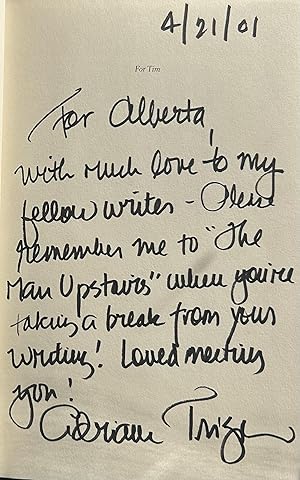 4/21/01
For Tim
For Alberta,
With much love to my
fellow writer - Please
remember me to "The
Man Upstairs" when you're
taking a break from your
writing! Loved meeting
you!
Adriana Trigiani